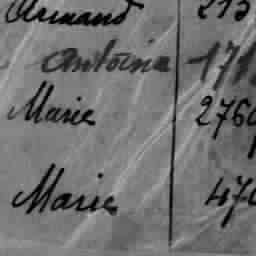 Armand 213
Antoine 171
Marie 2760
Marie 470